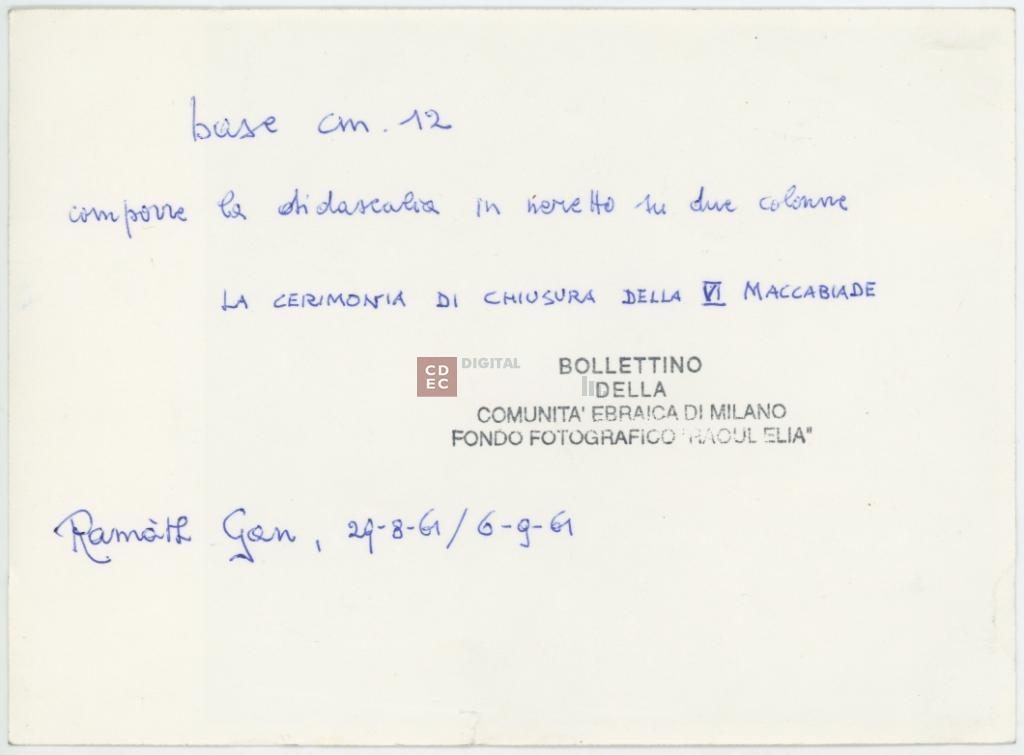 base cm. 12
comporre la didascalia in neretto su due colonne
LA CERIMONIA DI CHIUSURA DELLA VI MACCABIADE
CD
EC
DIGITAL
BOLLETTINO
DELLA
COMUNITA' EBRAICA DI MILANO
FONDO FOTOGRAFICO "RAOUL ELIA"
Ramàth Gan, 29-8-61/6-9-61